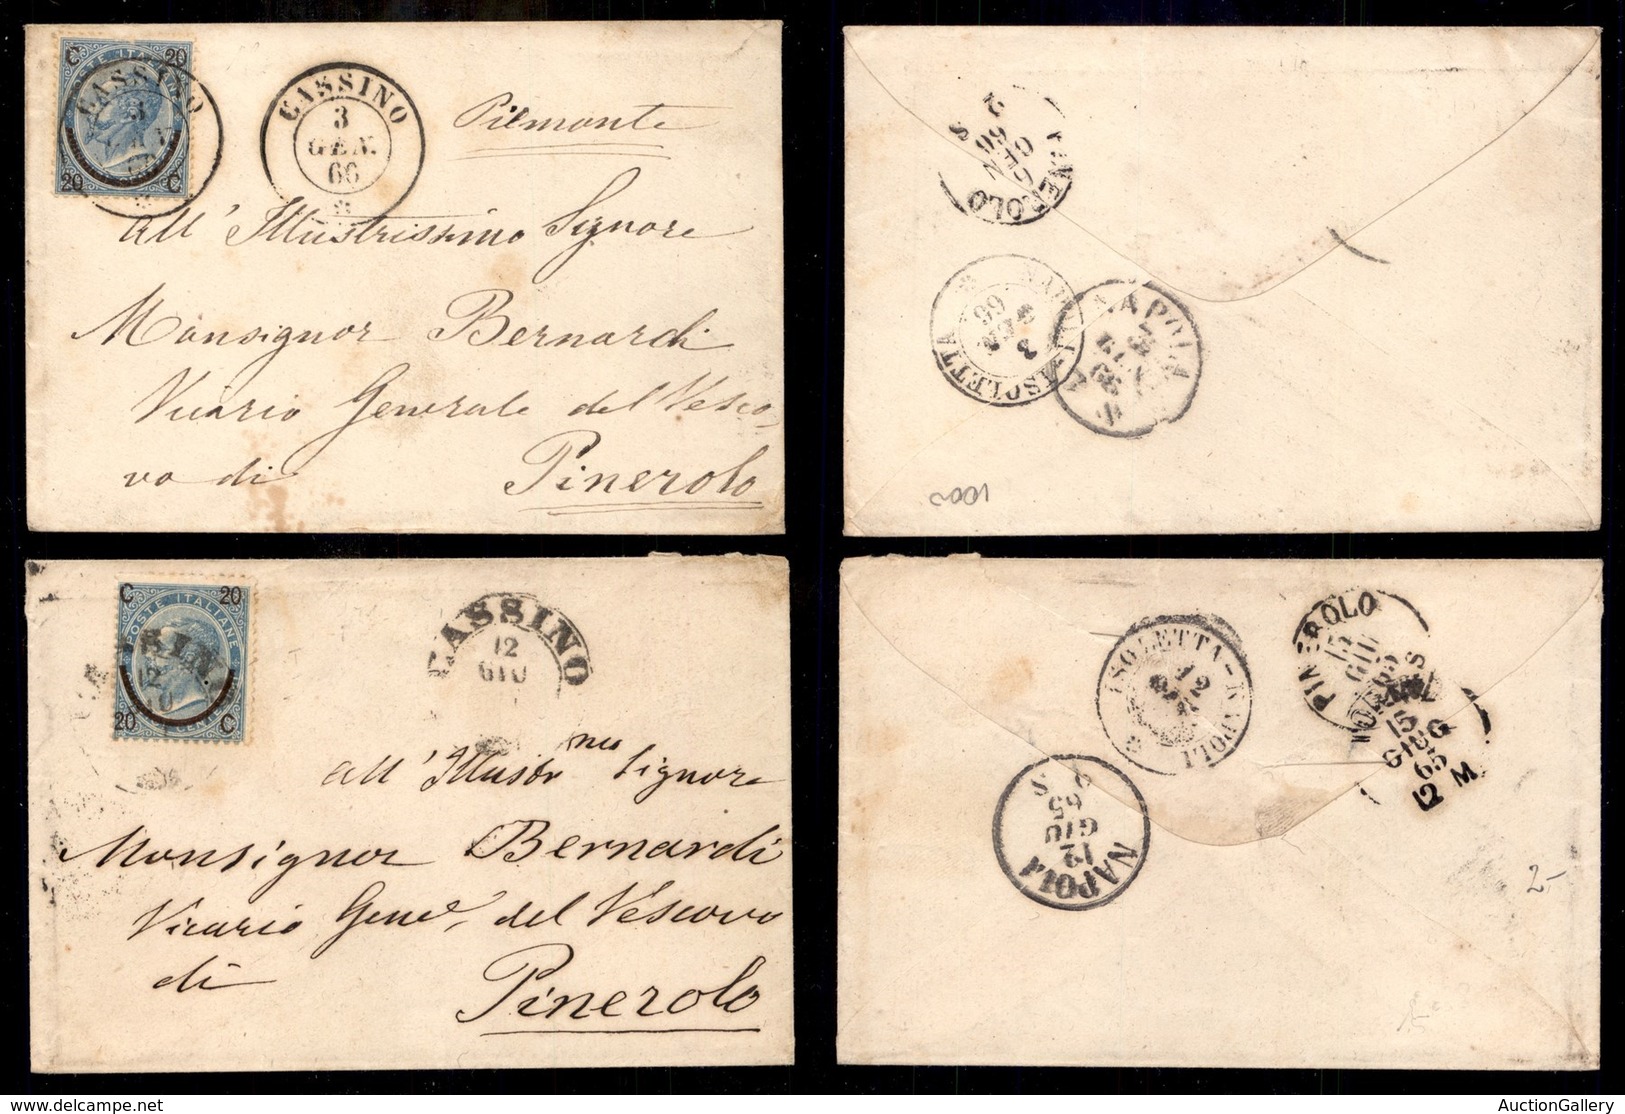 C 20
POSTE ITALIANE
20 C
CASSINO
3
CASSINO
3
GEN.
66
Piemonte
all' Illustrissimo Signore
Monsignor Bernardi
Vicario Generale del Vesco-
vo di Pinerolo
PINEROLO
6
GEN
66
2 S
ISOLETTA
3
66
NAPOLI
1000
C 20
POSTE ITALIANE
20 C
12
CASSINO
12
GIU
all' Illustr mo Signore
Monsignor Bernardi
Vicario Gene.e del Vescovo
di Pinerolo
ISOLETTA-NAPOLI
12
NAPOLI
12
GIU
65
6 S
PINEROLO
15
GIU
65
15
GIUG
65
12 M
2-
AuctionGallery